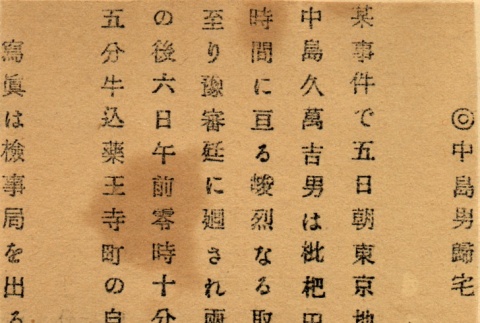 ◎中島男歸宅
某事件で五日朝東京地
中島久萬吉男は枇杷田
時間に亘る峻烈なる取
至り豫審廷に廻され兩
の後六日午前零時十分
五分牛込藥王寺町の自
寫眞は檢事局を出る